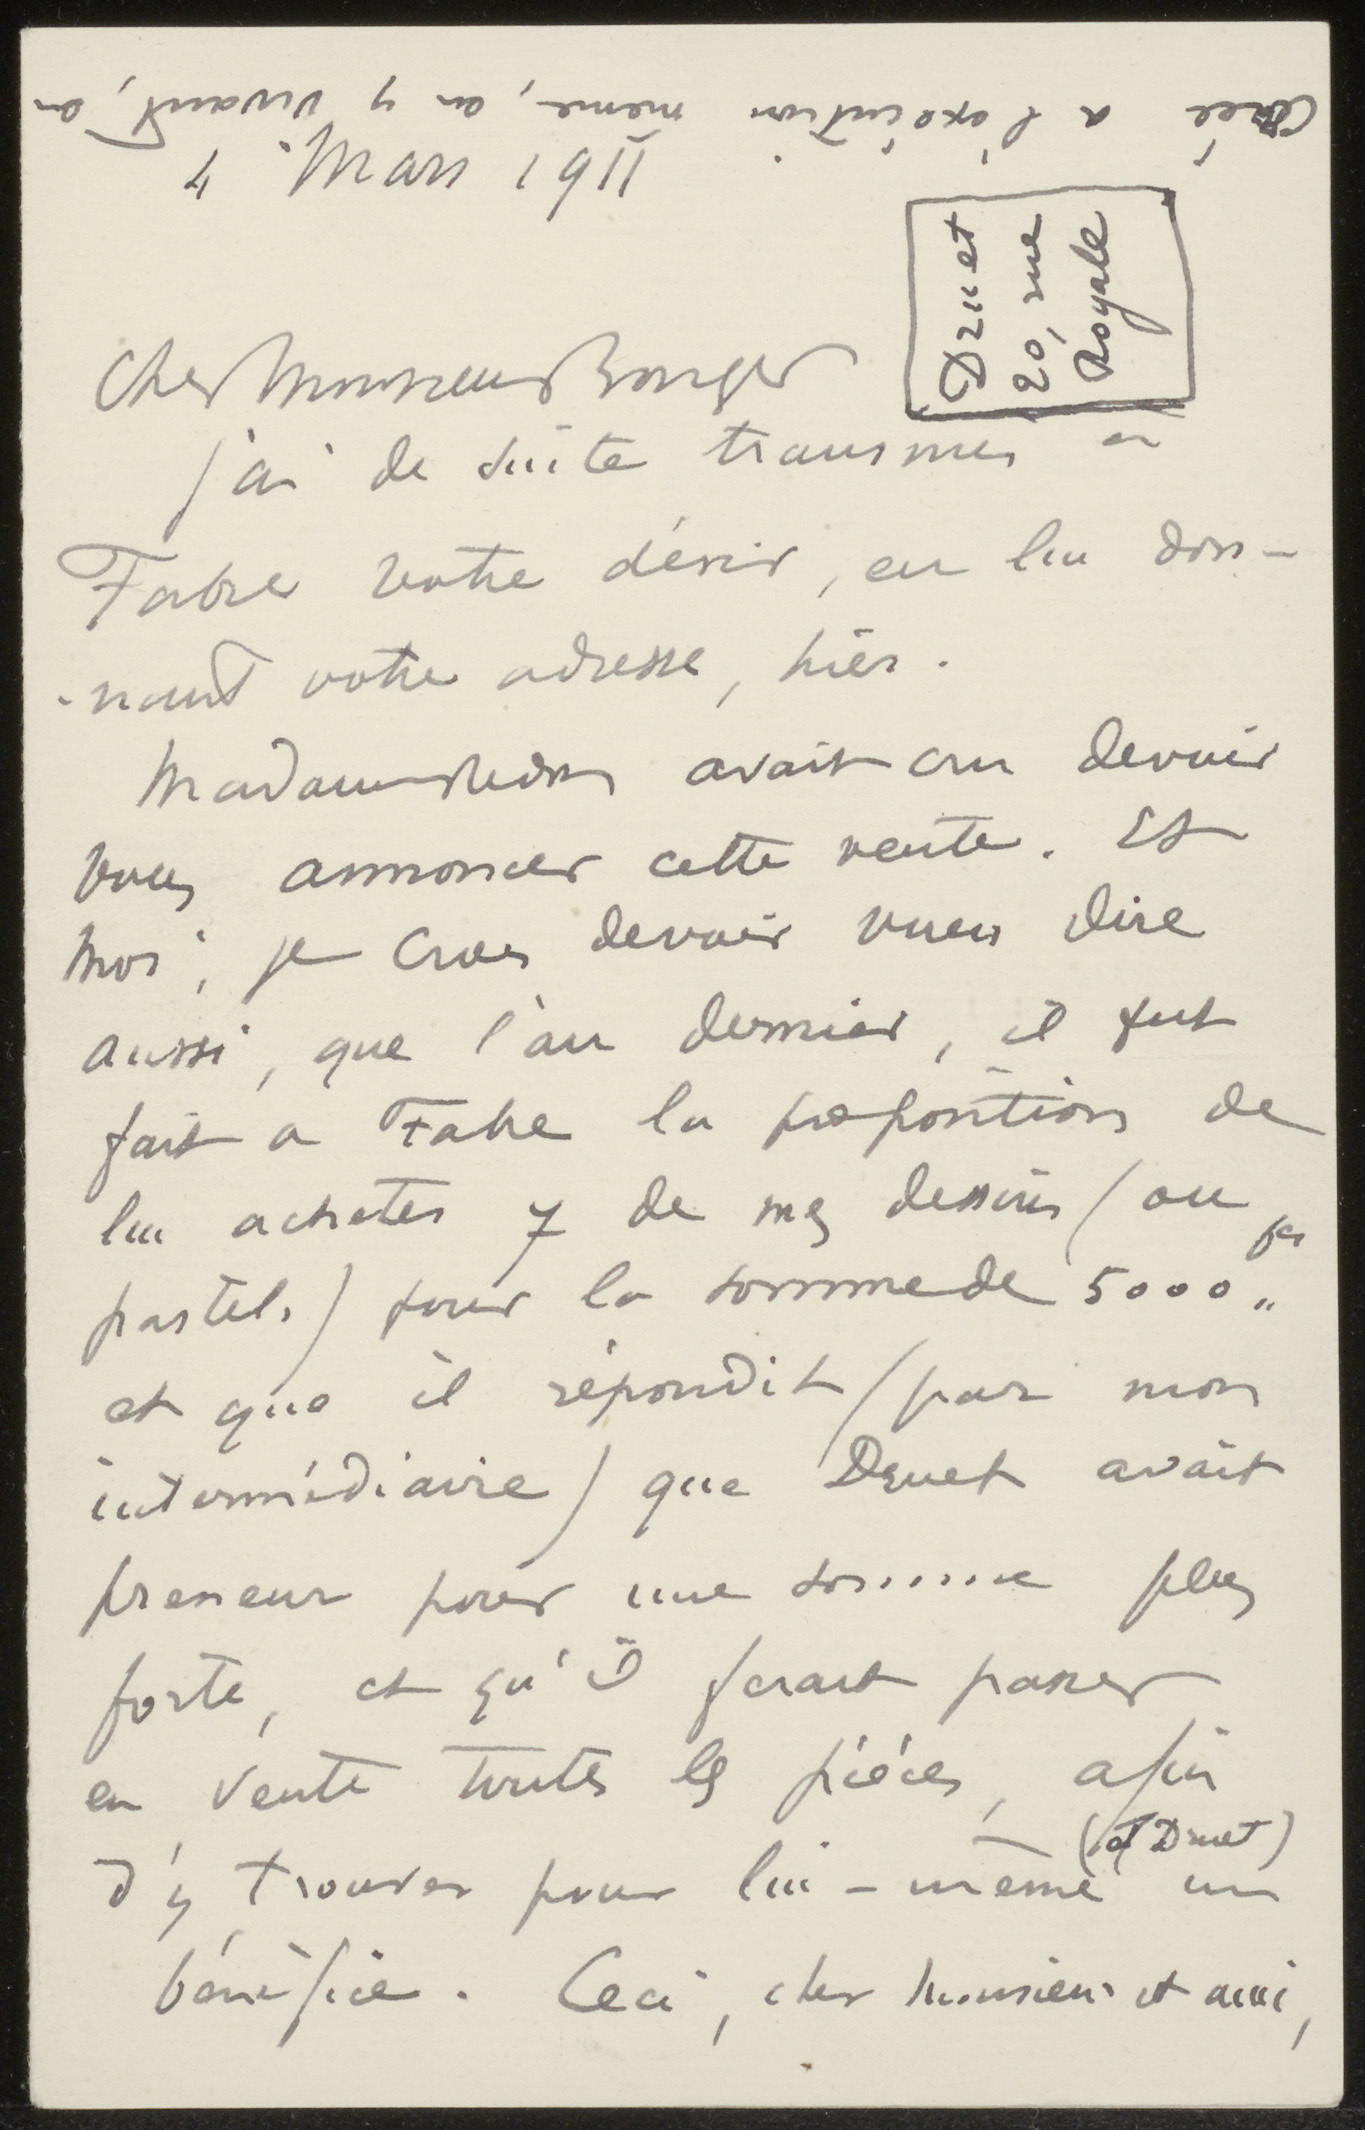 Créé à l'exécution même, en y vivant, en
4 Mars 1911
Druet
20, rue
Royale
Cher Monsieur Bonger
j'ai de suite transmis à
Fabre votre désir, en lui don-
-nant votre adresse, hier.
Madame Redon avait cru devoir
vous annoncer cette vente. Et
moi, je crois devoir vous dire
aussi, que l'an dernier, il fut
fait a Fabre la proposition de
lui acheter 7 de mes dessins (ou
pastels) pour la somme de 5000 frs
et que il répondit (par mon
intermédiaire) que Druet avait
preneur pour une somme plus
forte, et qu'il ferait passer
en vente toutes les pièces, afin
d'y trouver pour lui-même (et Druet) un
bénéfice. Ceci, cher monsieur et ami,